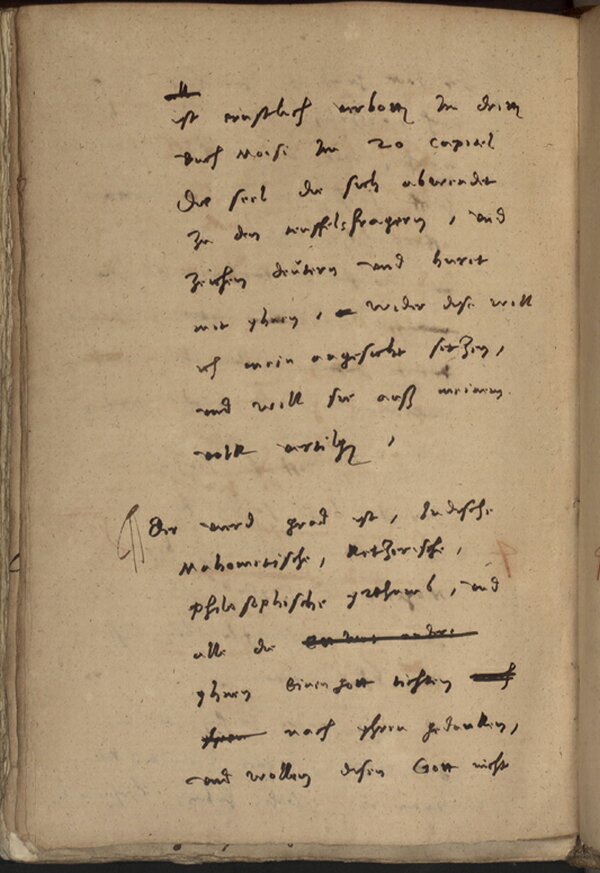 ist ernstlich verbotten im dritten
buch Moisi im 20 capitel
Die seel die sich abwendet
zu den teuffelsfragern, und
zeichen deütern und huret
mit yhnen, wider dise will
ich mein angesicht setzen,
und will sie auß meinem
volk vertilgen,
Der vierd grad ist, Jüdische
Mahometische, Ketzerische,
philosophische yrthumb, und
alle die
yhnen einen gott tichten
nach yhren gedanken,
und wollen disen Gott nicht